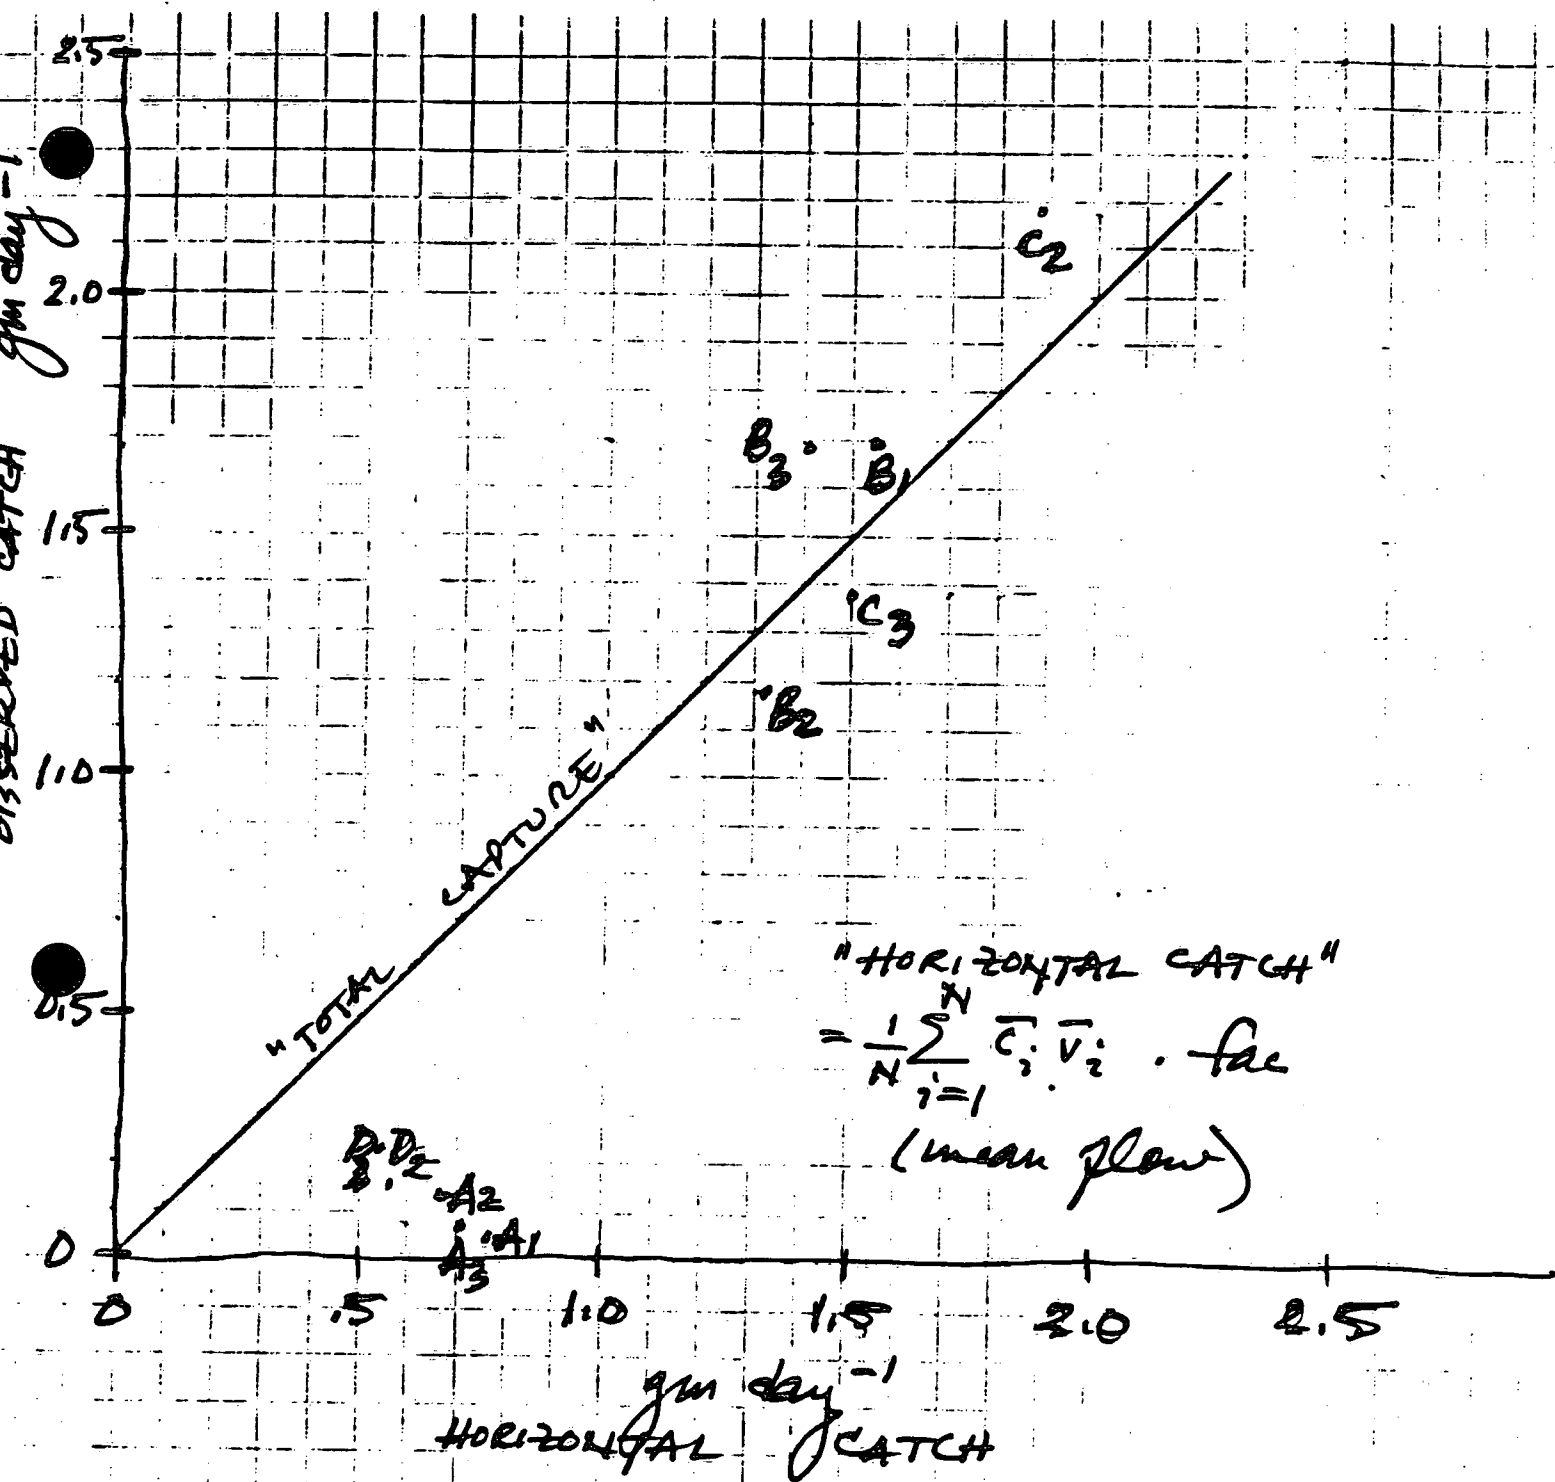 OBSERVED CATCH gm day -1
2.5
2.0
1.5
1.0
0.5
0
C2
B3
B1
C3
B2
"TOTAL CAPTURE"
"HORIZONTAL CATCH"
= 1/N Σ i=1 N c̄i v̄i . fac
(mean flow)
D3
D2
A2
A1
A3
0 .5 1.0 1.5 2.0 2.5
gm day -1
HORIZONTAL CATCH